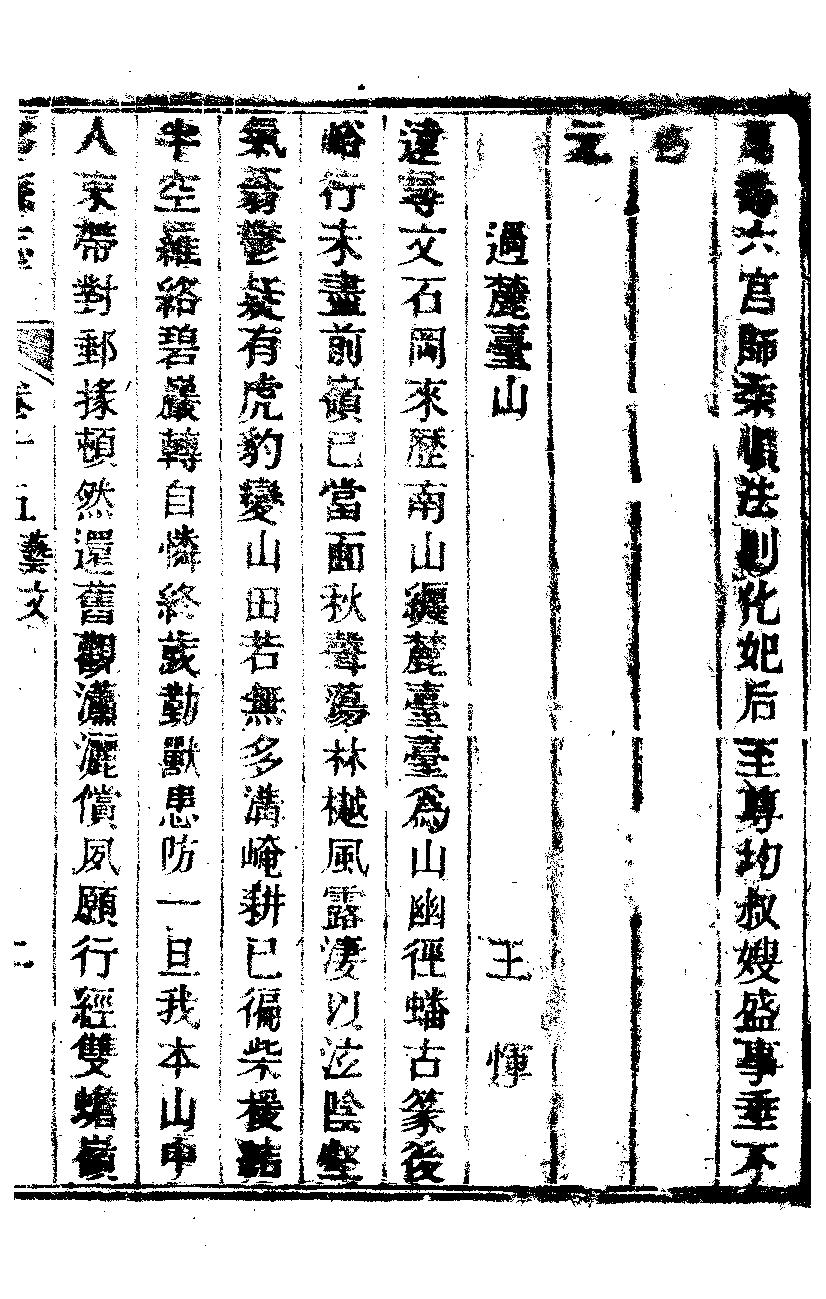 萬壽六宮師柔順法則化妃后至尊均叔嫂盛事垂不
朽
元
過麓臺山　王惲
遠尋文石岡來歷南山纒麓臺臺為山幽徑蟠古篆後
峪行未盡前嶺已當面秋聲蕩林樾風露淒以泫陰壑
氣蓊鬱疑有虎豹變山田若無多溝崦耕已徧柴援詰
半空羅絡碧巖轉自憐終歲勤獸患防一旦我本山中
人束帶對郵掾頓然還舊觀瀟灑償夙願行經雙蟾嶺
卷十五藝文